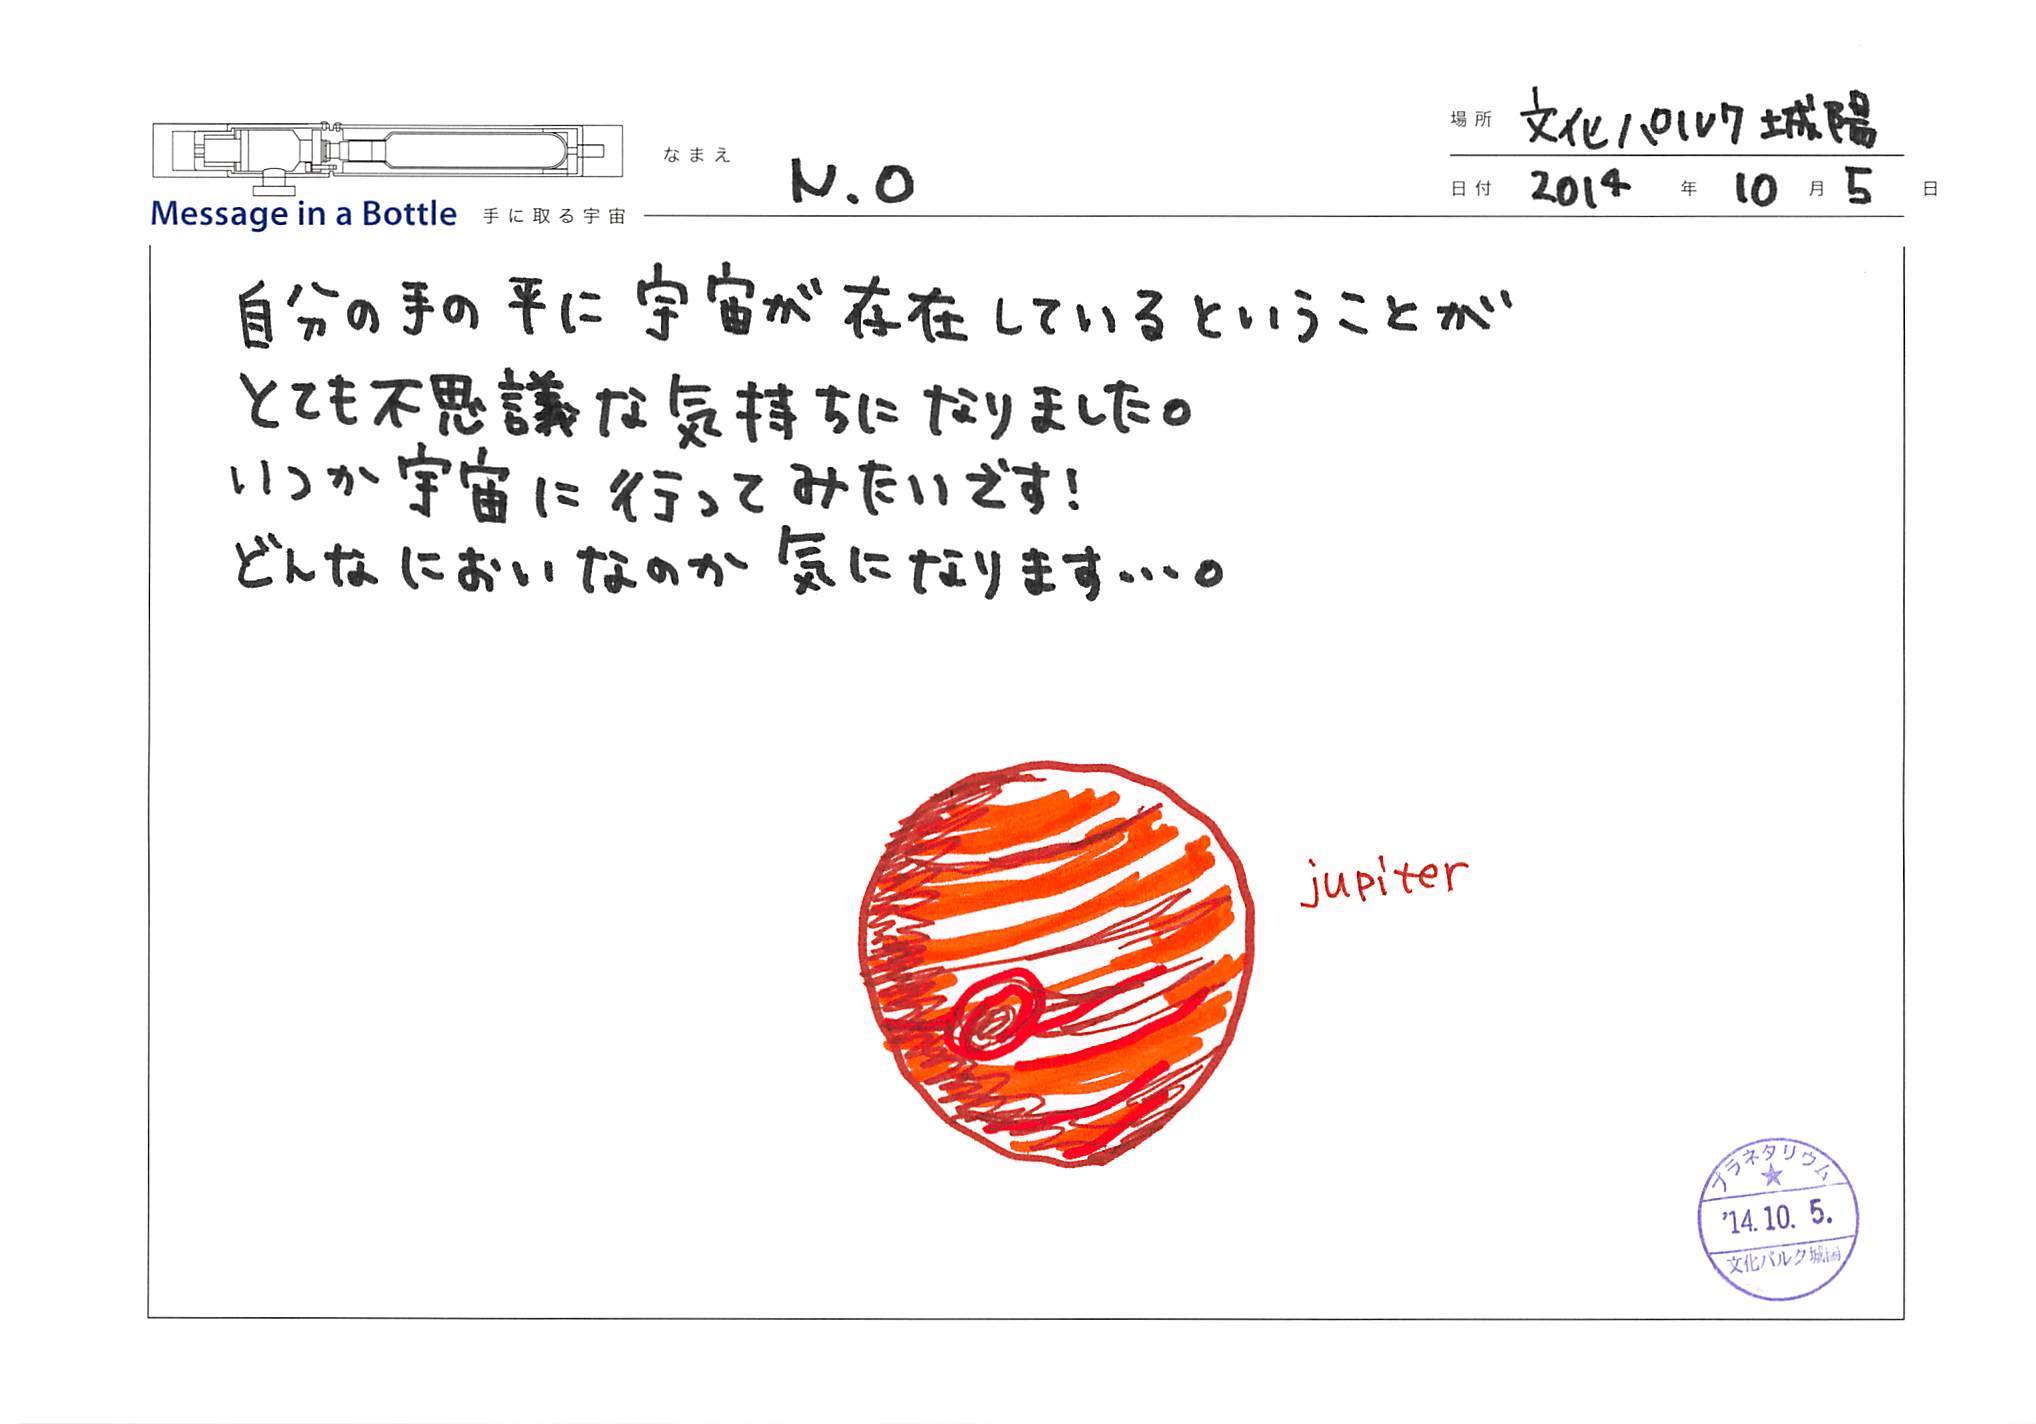 場所 文化パルク城陽
なまえ N.O
日付 2014 年 10 月 5 日
Message in a Bottle 手に取る宇宙
自分の手の平に宇宙が存在しているということが
とても不思議な気持ちになりました。
いつか宇宙に行ってみたいです!
どんなにおいなのか気になります…。
jupiter
プラネタリウム
★
'14.10.5.
文化パルク城陽